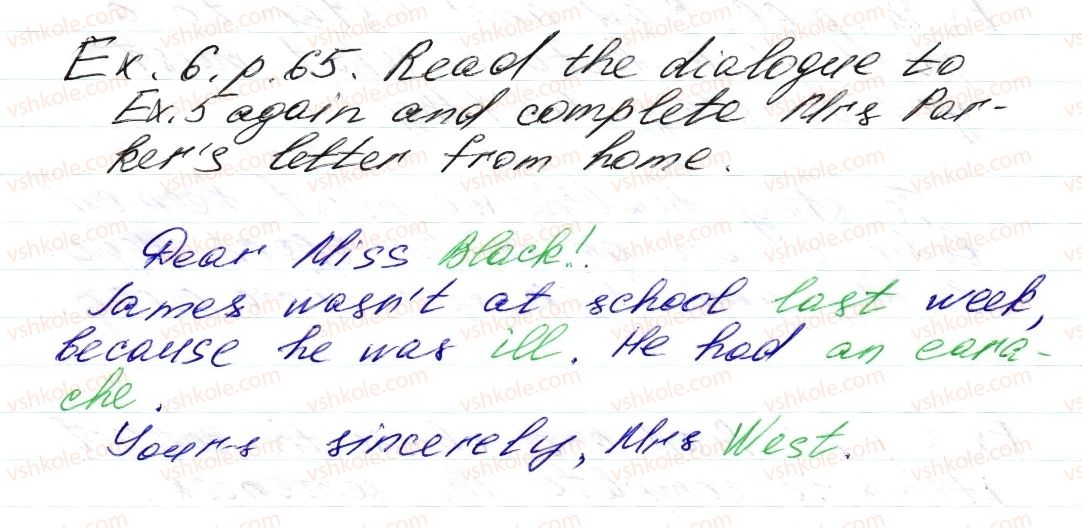 Ex. 6. p. 65. Read the dialogue to
Ex. 5 again and complete Mrs Par-
ker's letter from home.
Dear Miss Black!
James wasn't at school last week,
because he was ill. He had an eara-
che.
Yours sincerely, Mrs West.